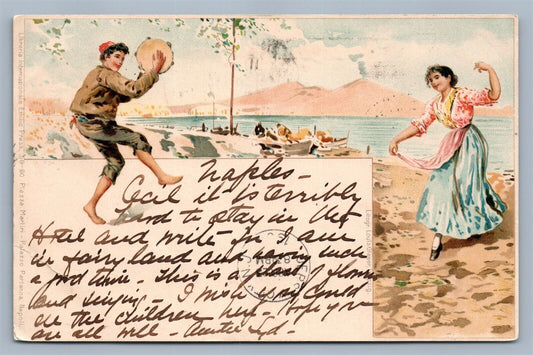 Naples -
Cecil it is terribly
hard to stay in the
Hotel and write for I am
in fairy land and having such
a good time - This is a land of flowers
and singing - I wish you could
see the children here - Hope you
are all well - Auntie
Libreria Internazionale
59-60 Piazza Martiri - Palazzo Partanna, Napoli